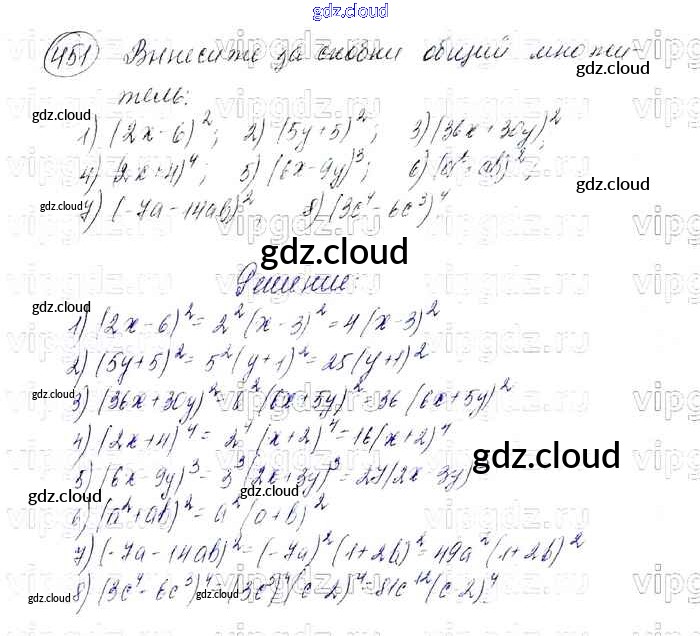 gdz.cloud
451 Вынесите за скобки общий множи-
gdz.cloud
тель:
gdz.cloud
1) (2x-6)²; 2) (5y+5)²; 3) (36x+30y)²;
4) (2x+4)⁴; 5) (6x-9y)³; 6) (a²+ab)²;
gdz.cloud
gdz.cloud
7) (-7a-14ab)² 8) (3c⁴-6c³)⁴
gdz.cloud
Решение:
gdz.cloud
1) (2x-6)² = 2²(x-3)² = 4(x-3)²
gdz.cloud
2) (5y+5)² = 5²(y+1)² = 25(y+1)²
gdz.cloud
3) (36x+30y)² = 6²(6x+5y)² = 36(6x+5y)²
4) (2x+4)⁴ = 2⁴(x+2)⁴ = 16(x+2)⁴
gdz.cloud
5) (6x-9y)³ = 3³(2x+3y)³ = 27(2x-3y)
gdz.cloud
gdz.cloud
6) (a²+ab)² = a²(a+b)²
7) (-7a-14ab)² = (-7a)²(1+2b)² = 49a²(1+2b)²
8) (3c⁴-6c³)⁴ = (3c³)⁴(c-2)⁴ = 81c¹²(c-2)⁴
gdz.cloud
gdz.cloud